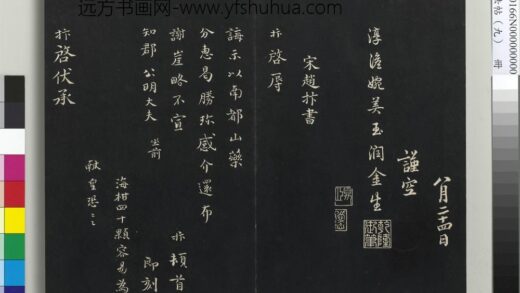 远方书画网-www.yfshuhua.com
0166N000000000
帖（九） 册
月
四日
謹空
淳澹婉美玉润金生
宋趙抃書
抃啓辱
誨示以南都山藥
分惠曷勝珍感介還布
謝崖略不宣
抃頓首
知郡公明大夫 坐前
即刻
海柑四十顆容易為
献皇恐〻
抃啓伏承